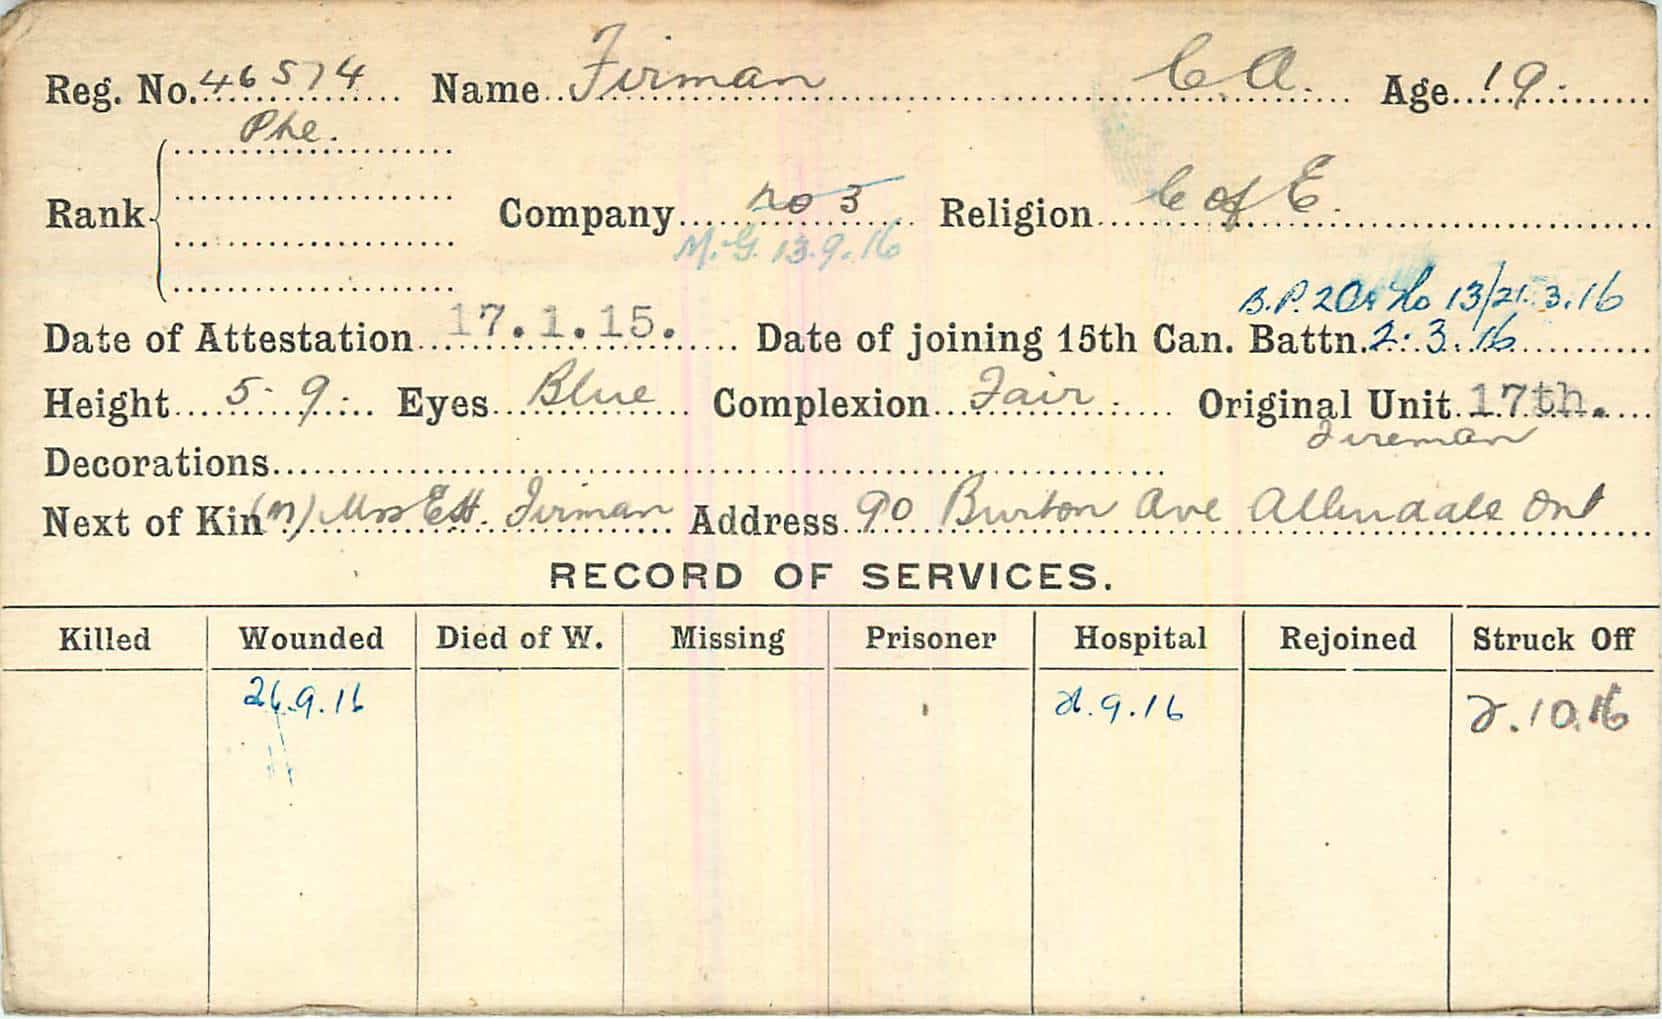 Reg. No. 46574 Name Firman C.A. Age 19
Pte.
Rank Company No 3 Religion C of E.
M.G. 13.9.16
B.P. 2 13/21.3.16
Date of Attestation 17.1.15. Date of joining 15th Can. Battn. 2.3.16
Height 5-9 Eyes Blue Complexion Fair Original Unit 17th.
Fireman
Decorations
Next of Kin (M) Mrs E.H. Firman Address 90 Burton Ave Allendale Ont
RECORD OF SERVICES.
Killed Wounded Died of W. Missing Prisoner Hospital Rejoined Struck Off
26.9.16 26.9.16 2.10.16